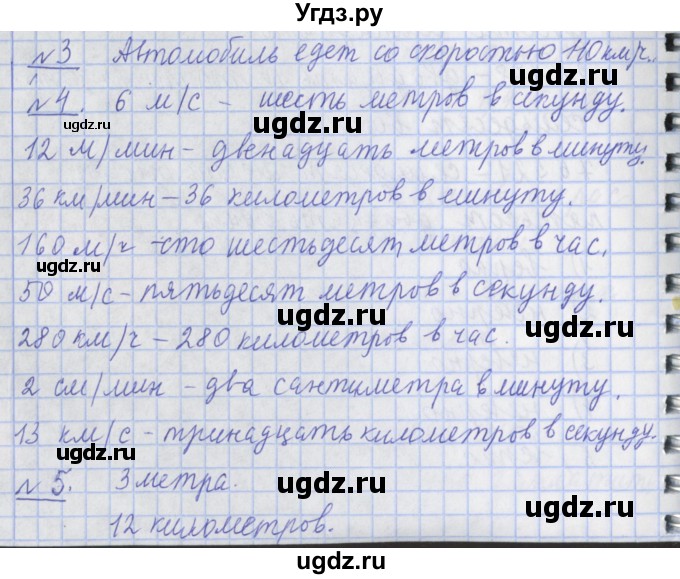 Угдз.ру
№3 Автомобиль едет со скоростью 110 км/ч.
ugdz.ru
№4. 6 м/с - шесть метров в секунду.
ugdz.ru ugdz.ru
12 м/мин - двенадцать метров в минуту.
36 км/мин - 36 километров в минуту.
ugdz.ru
160 м/ч - сто шестьдесят метров в час.
ugdz.ru
50 м/с - пятьдесят метров в секунду.
ugdz.ru
280 км/ч - 280 километров в час.
ugdz.ru
2 см/мин - два сантиметра в минуту.
ugdz.ru
13 км/с - тринадцать километров в секунду.
ugdz.ru
№5. 3 метра.
ugdz.ru
12 километров.
ugdz.ru